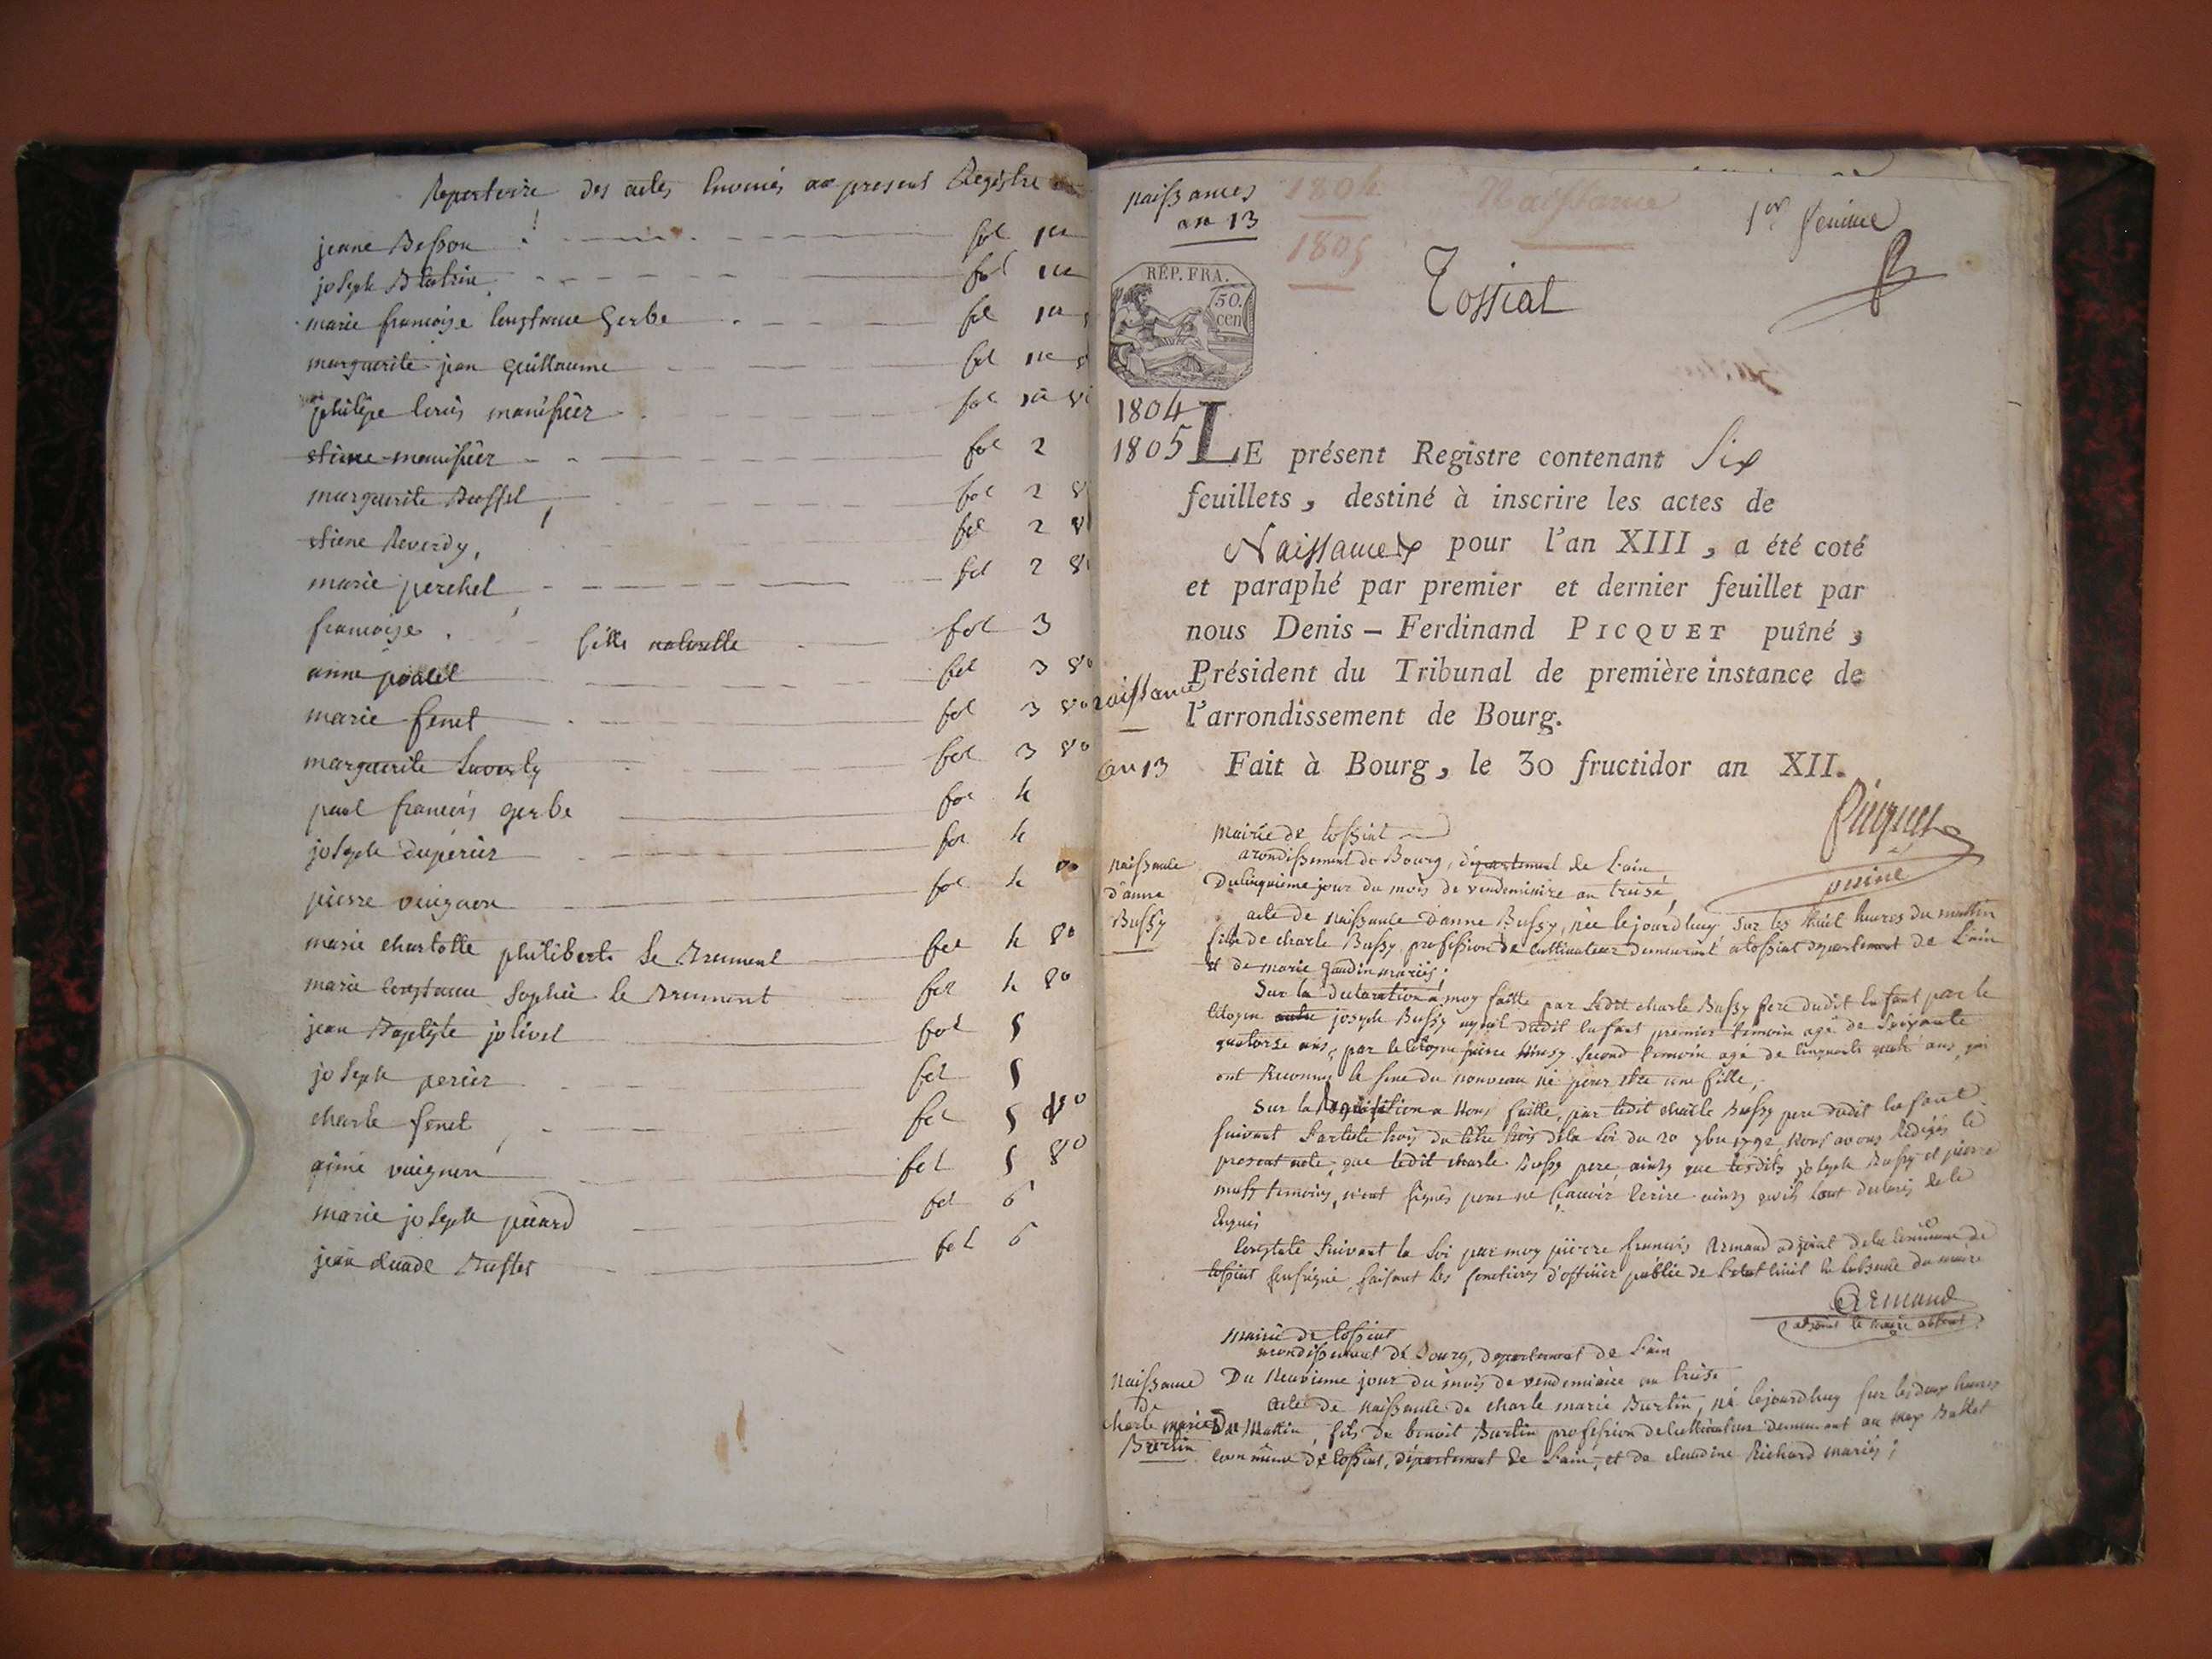 Repertoire des actes au present Registre
jeane Besson fol 1er
joseph fol 1er
marie francoise Constance Gerbe fol 1er
marguerite jean Guillaume fol 1er
philipe louis manissier fol 1er
etiene manissier fol 2
marguerite Buffet fol 2
etiene Reverdy fol 2
marie perchel fol 2
francoise fille naturelle fol 3
anne fol 3 vo
marie fenet fol 3 vo
marguerite fol 3 vo
paul francois gerbe fol 4
joseph duperier fol 4
pierre fol 4 vo
marie charlotte philiberte le fol 4 vo
marie Constance Sophie le fol 4 vo
jean Baptiste jolivet fol 5
joseph perier fol 5
charle fenet fol 5 vo
aimé fol 5 vo
marie joseph picard fol 6
jean claude fol 6
naissances
an 13
1804
1805
Naissance
1er feuille
Tossiat
RÉP. FRA.
50.
cen
1804
1805
LE présent Registre contenant Six
feuillets, destiné à inscrire les actes de
Naissances pour l'an XIII, a été coté
et paraphé par premier et dernier feuillet par
nous Denis-Ferdinand PICQUET puîné,
Président du Tribunal de première instance de
l'arrondissement de Bourg.
naissance
an 13
Fait à Bourg, le 30 fructidor an XII.
Picquet
puiné
Mairie de tossiat
arondissement de Bourg, département de l'ain
naissance
d'anne
Bussy
Du cinquieme jour du mois de vendemiaire an treise,
acte de naissance d'anne Bussy, née cejourdhuy sur les huit heures du mattin
fille de charle Bussy, profession de cultivateur demeurant a tossiat departement de l'ain
et de marie gaudin mariés;
Sur la declaration a moy faitte par ledit charle Bussy pere dudit enfant par le
citoyen joseph Bussy ayeul dudit enfant premier temoin agé de soixante
quatorse ans, par le citoyen pierre second temoin agé de cinquante quatre ans, qui
ont reconnus le sexe du nouveau né pour etre une fille,
Sur la requisition a nous faitte, par ledit charle Bussy pere dudit enfant
suivant l'article trois du titre trois de la loi du 20 7bre 1792 nous avons redigés le
present acte, que ledit charle Bussy pere, ainsy que lesdits joseph Bussy et pierre
temoins, n'ont signés pour ne sçavoir écrire ainsy qu'ils l'ont declarés de ce
Enquis
Constaté suivant la loi par moy pierre francois Armand adjoint de la commune de
tossiat soussigné, faisant les fonctions d'officier public de l'etat civil en l'absence du maire
Armand
adjoint le maire absent
Mairie de tossiat
arondissement de Bourg, departement de l'ain
naissance
de
charle marie
Burtin
Du neuvieme jour du mois de vendemiaire an treise
acte de naissance de charle marie Burtin, né cejourdhuy sur les deux heures
Du Mattin, fils de benoit Burtin profession de cultivateur demeurant au
commune de tossiat, département de l'ain, et de claudine Richard mariés;